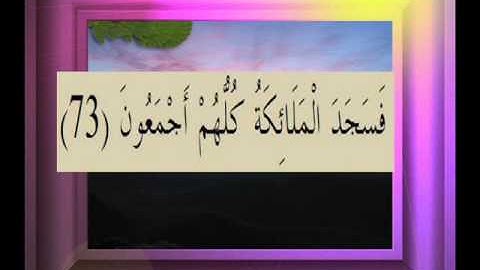 فَسَجَدَ الْمَلَائِكَةُ كُلُّهُمْ أَجْمَعُونَ (73)